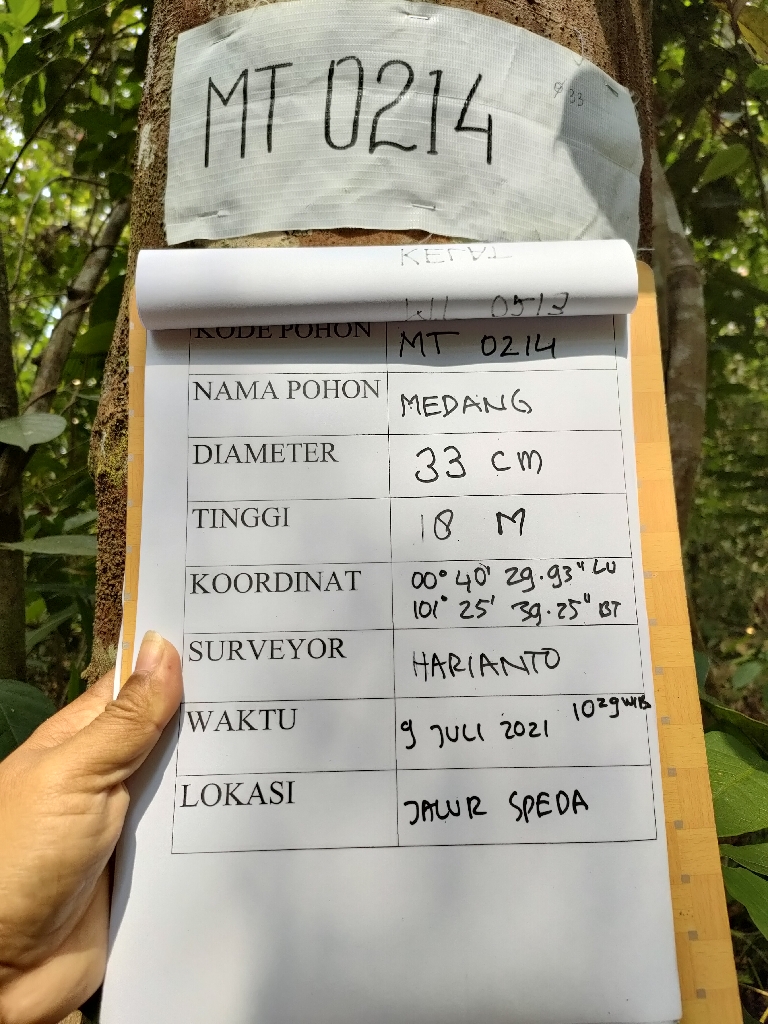 MT 0214
φ 33
WL 0513
KODE POHON MT 0214
NAMA POHON MEDANG
DIAMETER 33 CM
TINGGI 18 M
KOORDINAT 00° 40' 29.93" LU
101° 25' 39.25" BT
SURVEYOR HARIANTO
WAKTU 9 JULI 2021 1029 WIB
LOKASI JALUR SPEDA